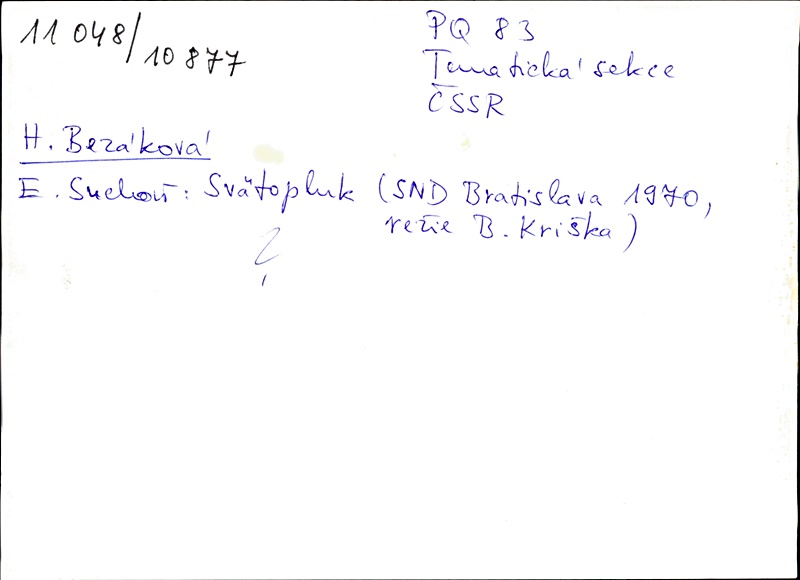 11 048/10 877
PQ 83
Tematická sekce
ČSSR
H. Bezáková
E. Suchoň: Svätopluk (SND Bratislava 1970,
režie B. Kriška)
?